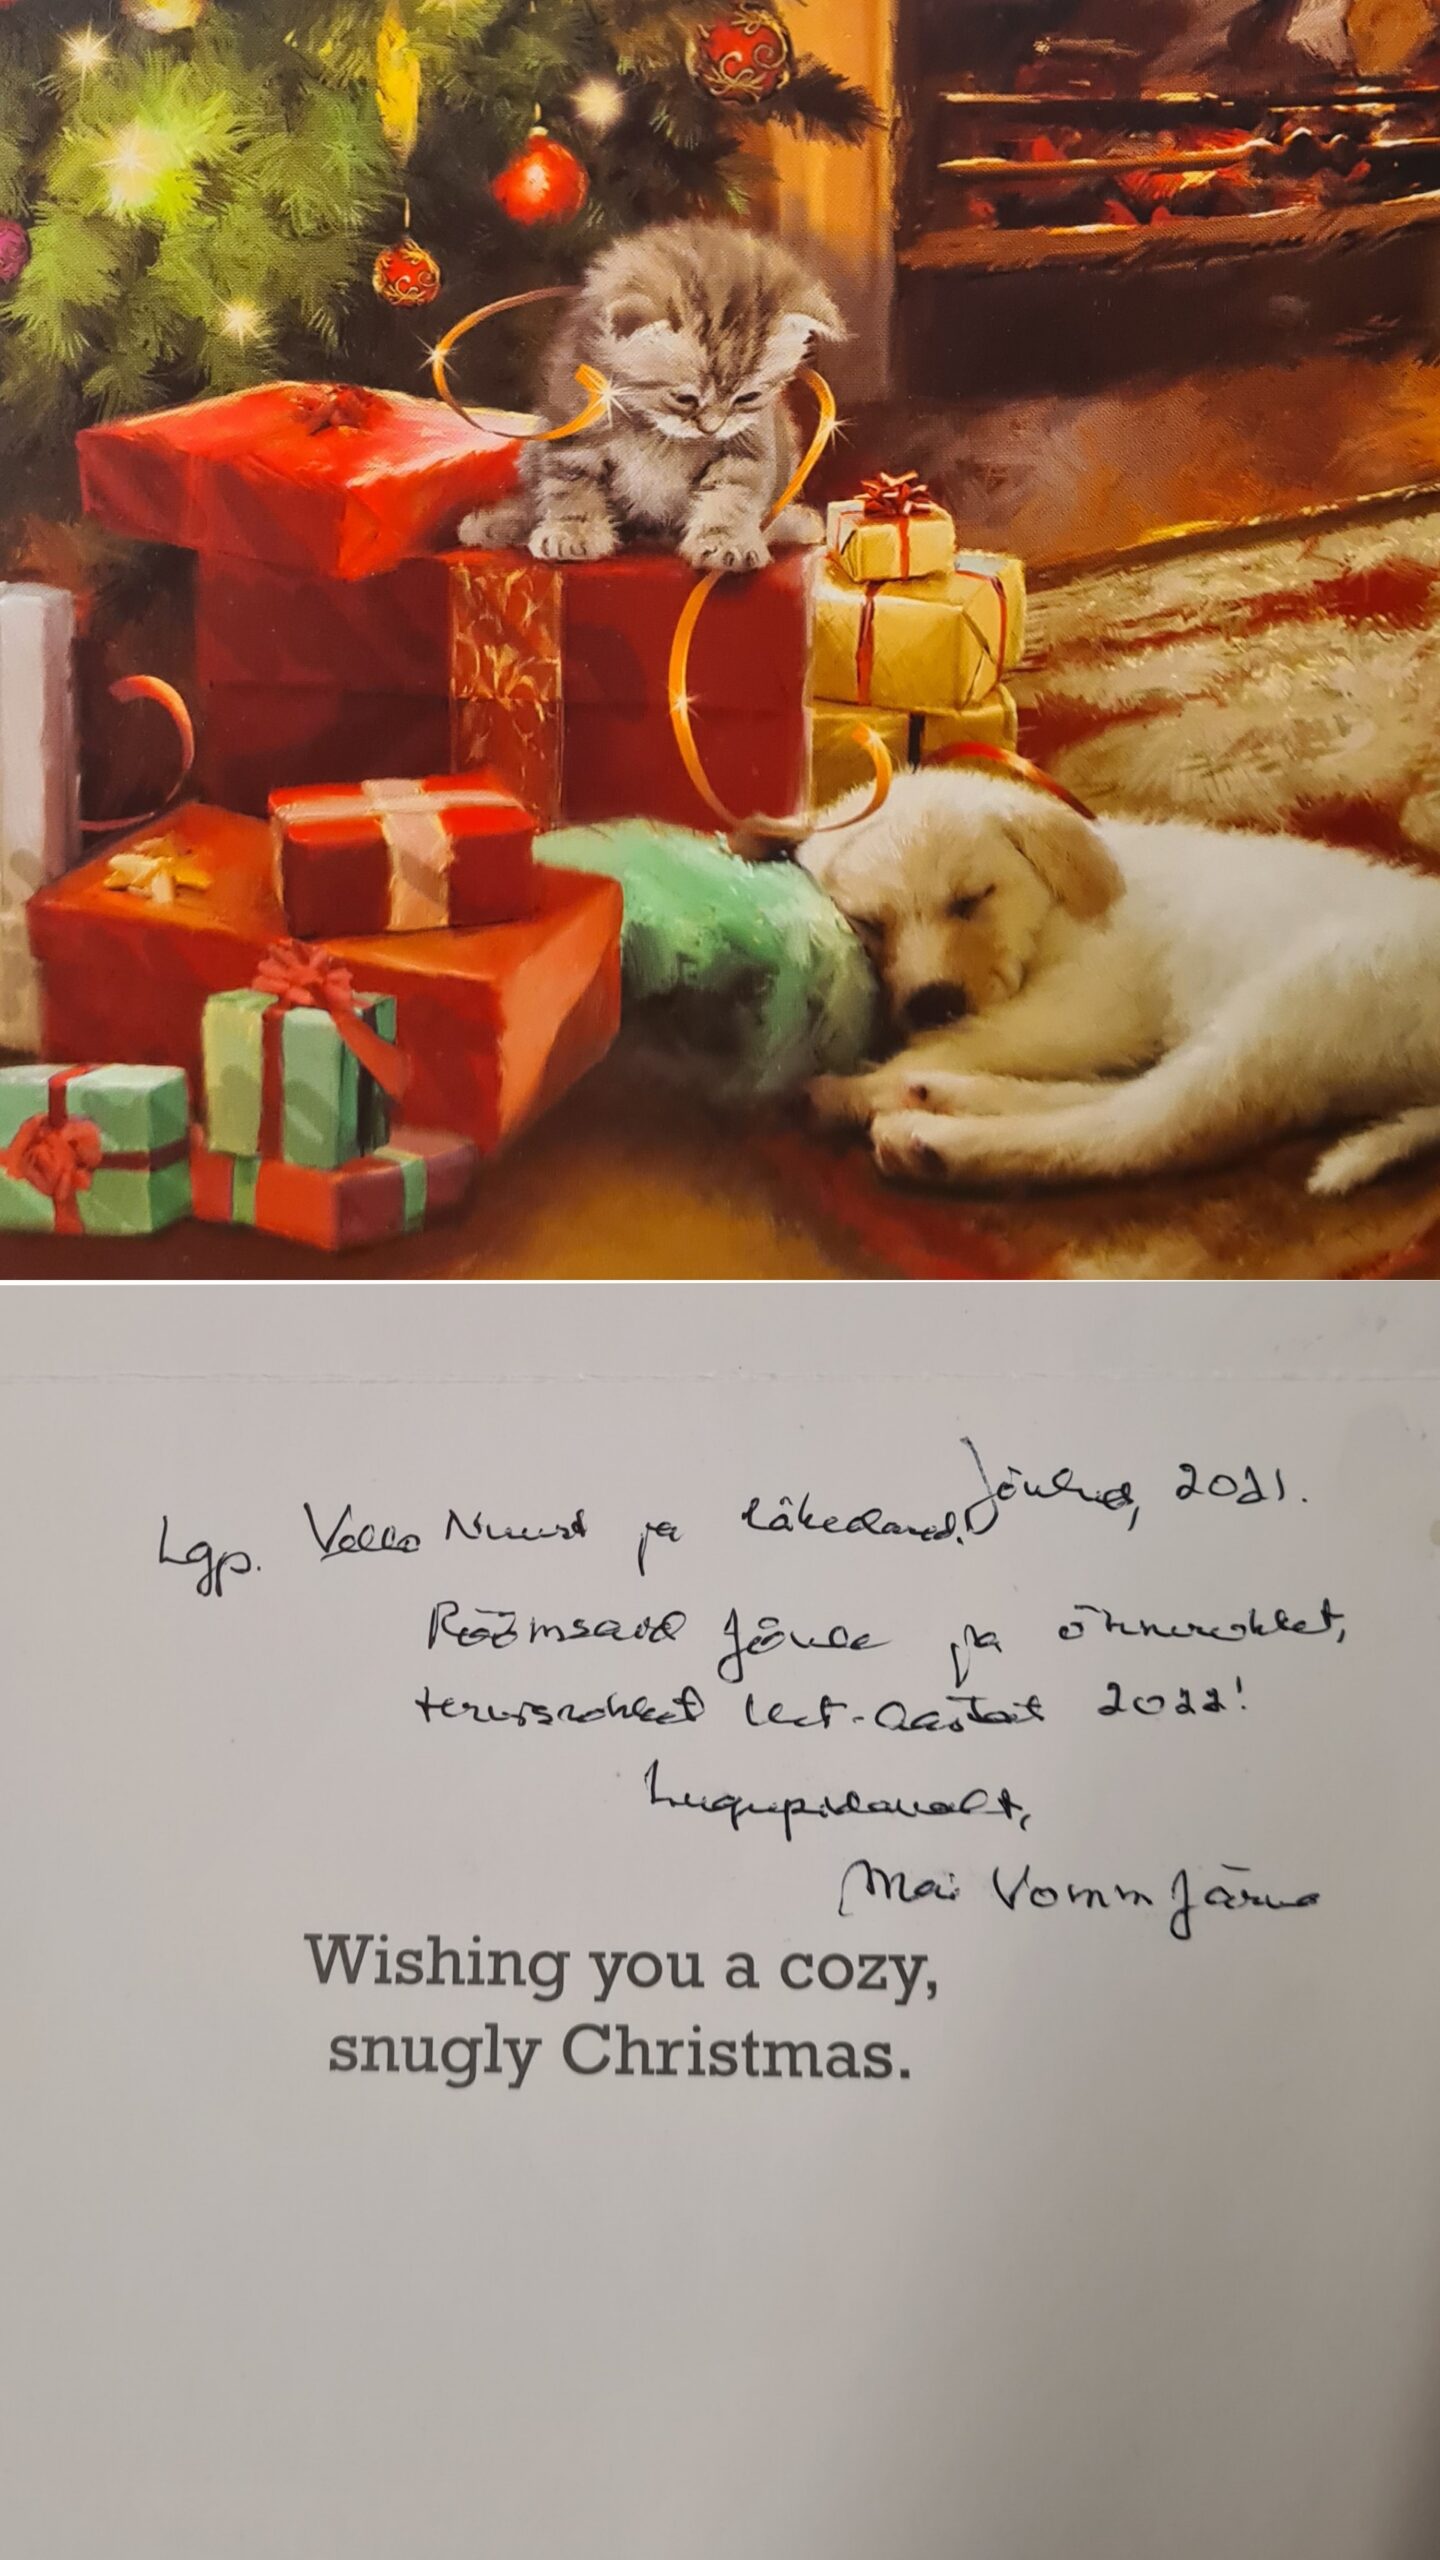 Jõulud, 2021.
Lgp. Vello Nuust ja
Rõõmsaid Jõule ja õnnerohket,
terviserohket Uut-Aastat 2022!
Lugupidavalt,
Mai Vomm Järve
Wishing you a cozy,
snugly Christmas.